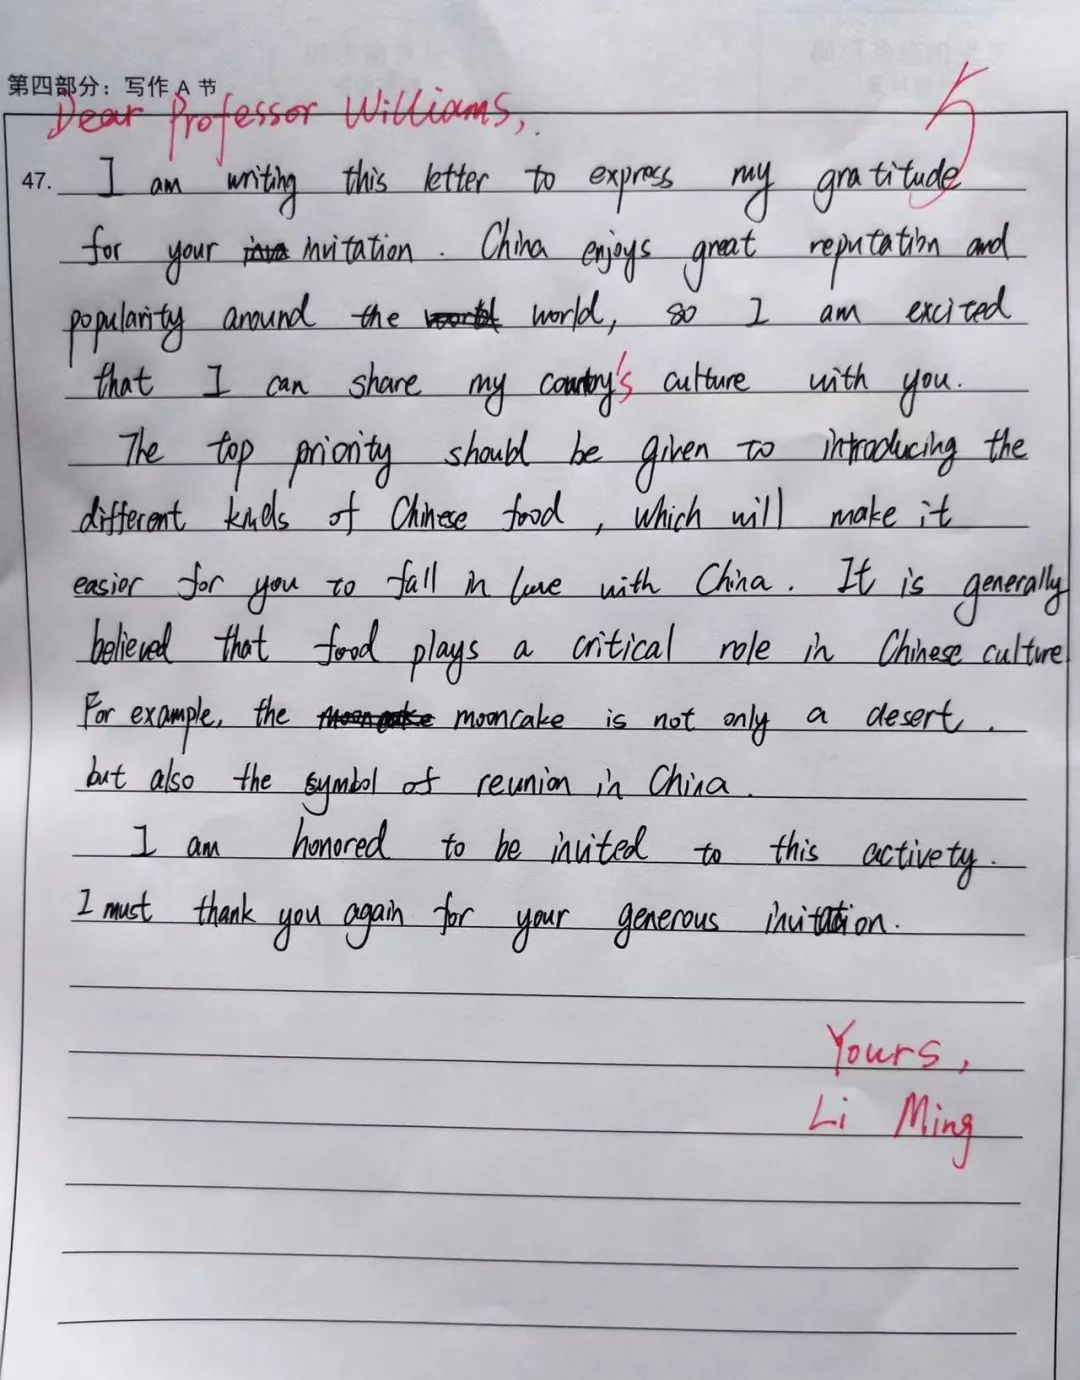 第四部分：写作 A 节
Dear Professor Williams,
5
47. I am writing this letter to express my gratitude
for your invitation. China enjoys great reputation and
popularity around the world, so I am excited
that I can share my country's culture with you.
The top priority should be given to introducing the
different kinds of Chinese food, which will make it
easier for you to fall in love with China. It is generally
believed that food plays a critical role in Chinese culture
For example, the mooncake is not only a desert,
but also the symbol of reunion in China.
I am honored to be invited to this activety.
I must thank you again for your generous invitation.
Yours,
Li Ming